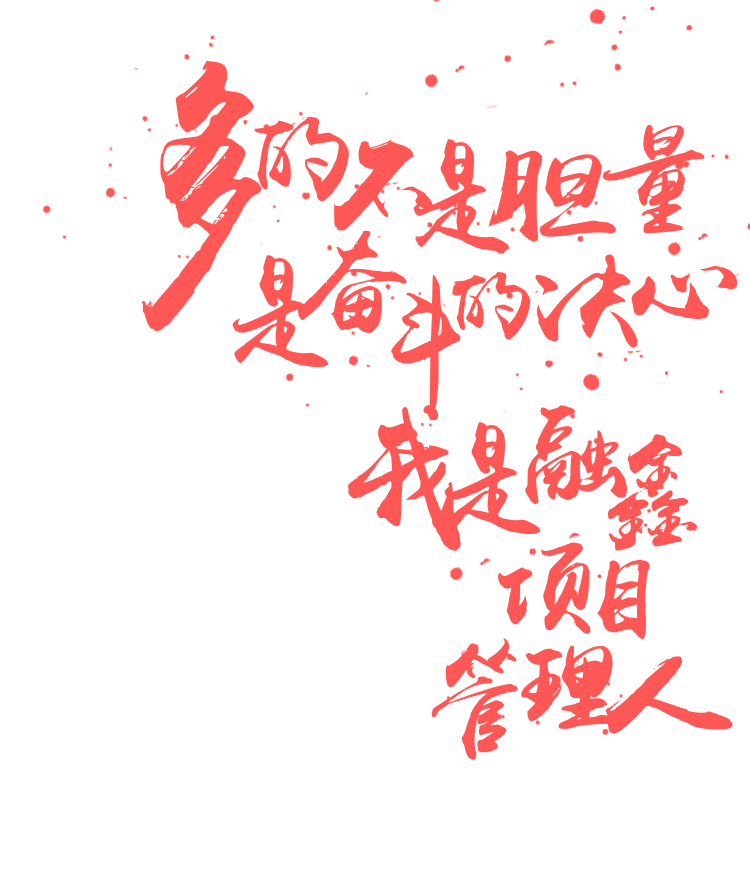 多的不是胆量
是奋斗的决心
我是融鑫
项目
管理人